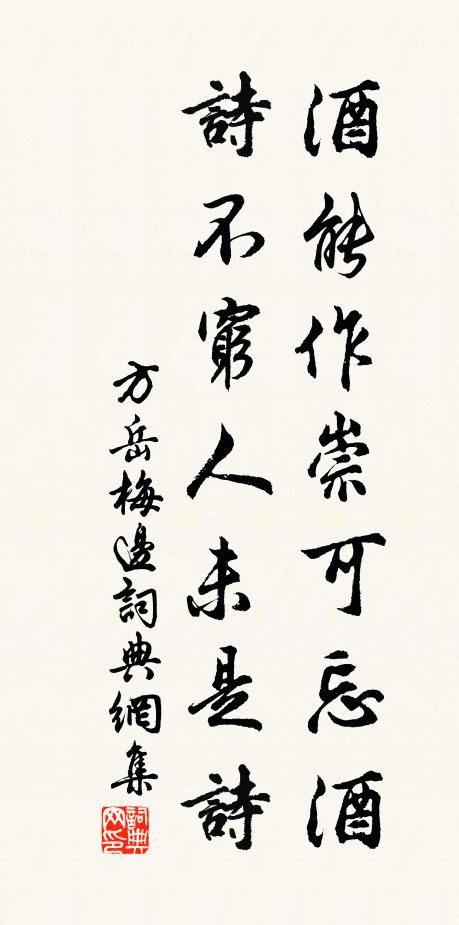 酒能作崇可忘酒
詩不窮人未是詩
方岳梅邊詞典網集
詞典网印